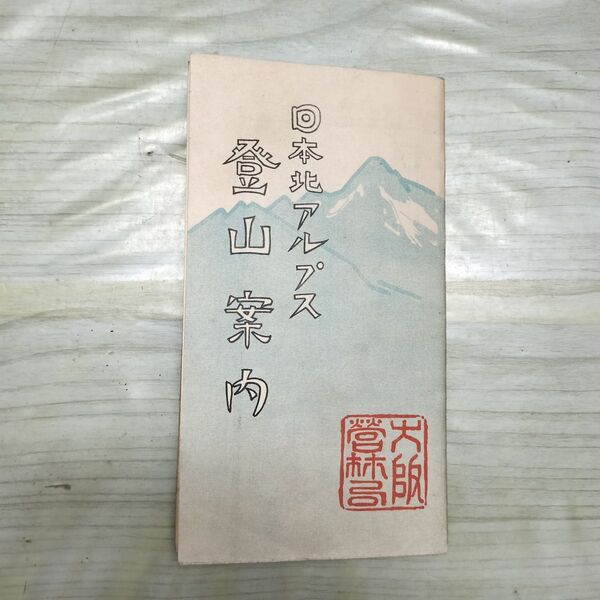 日本北アルプス
登山案内
大阪
営林局